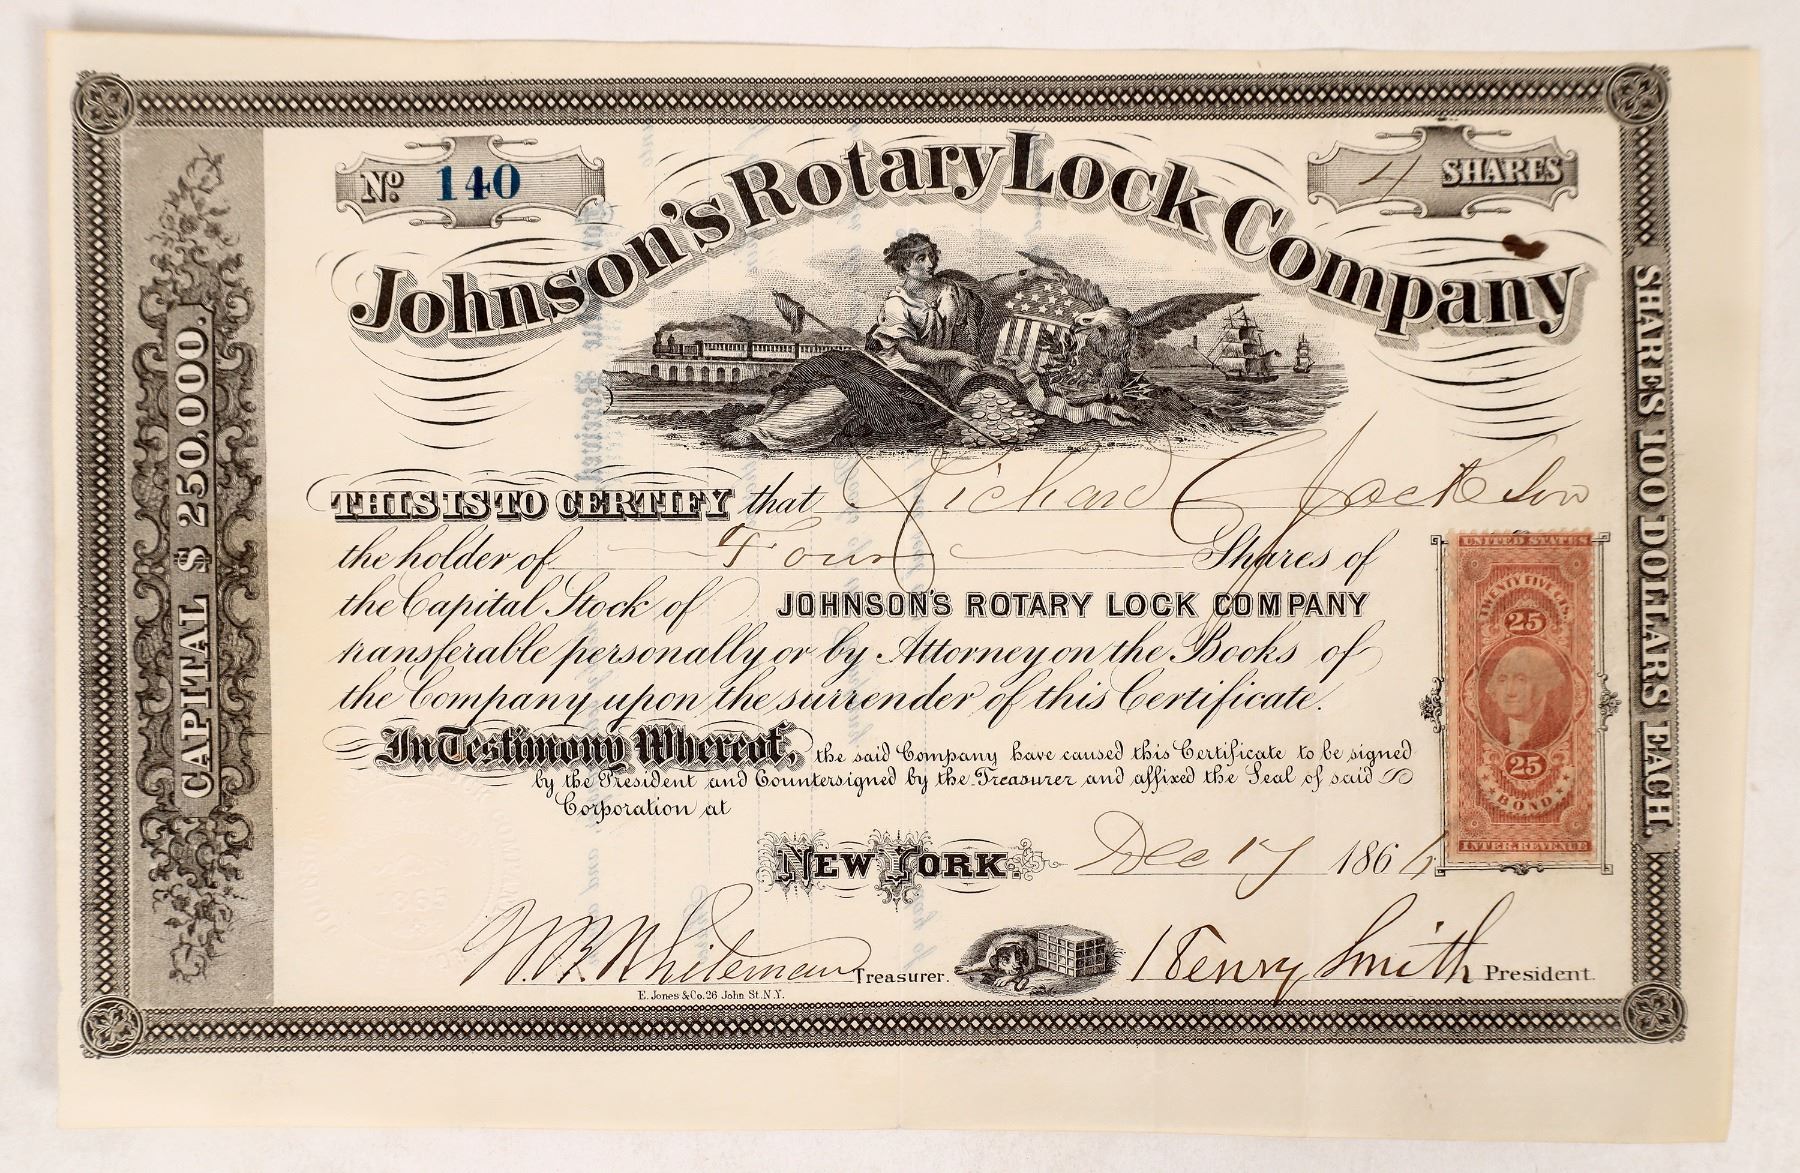 No. 140
4 SHARES
Johnson's Rotary Lock Company
CAPITAL $ 250,000.
SHARES 100 DOLLARS EACH.
THIS IS TO CERTIFY that Richard Jackson
the holder of Four Shares of
the Capital Stock of JOHNSON'S ROTARY LOCK COMPANY
transferable personally or by Attorney on the Books of
the Company upon the surrender of this Certificate.
In Testimony Whereof, the said Company have caused this Certificate to be signed
by the President and Countersigned by the Treasurer and affixed the Seal of said
Corporation at
NEW YORK. Dec 17 1864
UNITED STATES
TWENTY FIVE CTS.
25
25
BOND
INTER. REVENUE
1865
W.B. Whiteman Treasurer.
Henry Smith President.
E. Jones & Co. 26 John St. N.Y.